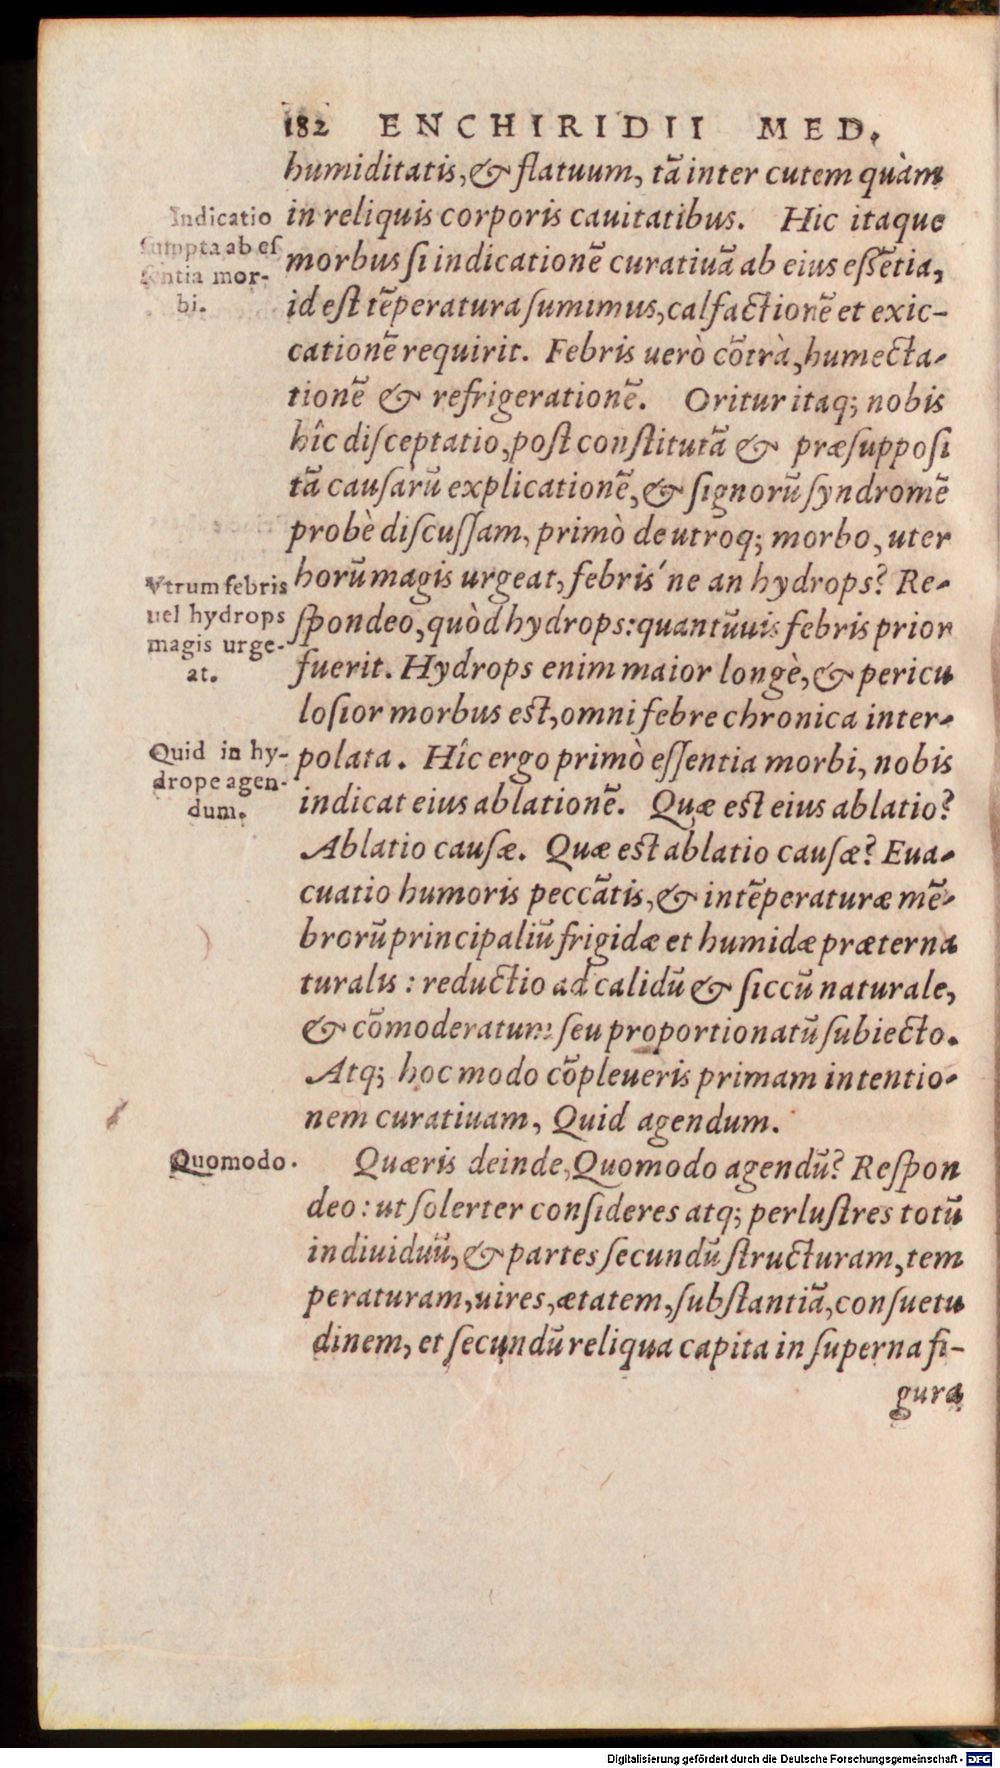 182 ENCHIRIDII MED.
humiditatis, & flatuum, tā inter cutem quàm
in reliquis corporis cauitatibus. Hic itaque
morbus ſi indicationē curatiuā ab eius eſſētia,
id eſt tēperatura ſumimus, calfactionē et exic-
cationē requirit. Febris uerò cōtrà, humecta-
tionē & refrigerationē. Oritur itaq; nobis
hîc diſceptatio, poſt conſtitutā & præſuppoſi
tā cauſarū explicationē, & ſignorū ſyndromē
probè diſcuſſam, primò de utroq; morbo, uter
horū magis urgeat, febris'ne an hydrops? Re-
ſpondeo, quòd hydrops: quantūuis febris prior
fuerit. Hydrops enim maior longè, & pericu
loſior morbus eſt, omni febre chronica inter-
polata. Hîc ergo primò eſſentia morbi, nobis
indicat eius ablationē. Quæ eſt eius ablatio?
Ablatio cauſæ. Quæ eſt ablatio cauſæ? Eua-
cuatio humoris peccātis, & intēperaturæ mē-
brorū principaliū frigidæ et humidæ præterna
turalis: reductio ad calidū & ſiccū naturale,
& cōmoderatum ſeu proportionatū ſubiecto.
Atq; hoc modo cōpleueris primam intentio-
nem curatiuam, Quid agendum.
Quæris deinde, Quomodo agendū? Reſpon
deo: ut ſolerter conſideres atq; perluſtres totū
indiuiduū, & partes ſecundū ſtructuram, tem
peraturam, uires, ætatem, ſubſtantiā, conſuetu
dinem, et ſecundū reliqua capita in ſuperna fi-
gura
Indicatio
ſumpta ab eſ
ſentia mor-
bi.
Vtrum febris
uel hydrops
magis urge-
at.
Quid in hy-
drope agen-
dum.
Quomodo.
Digitalisierung gefördert durch die Deutsche Forschungsgemeinschaft - DFG